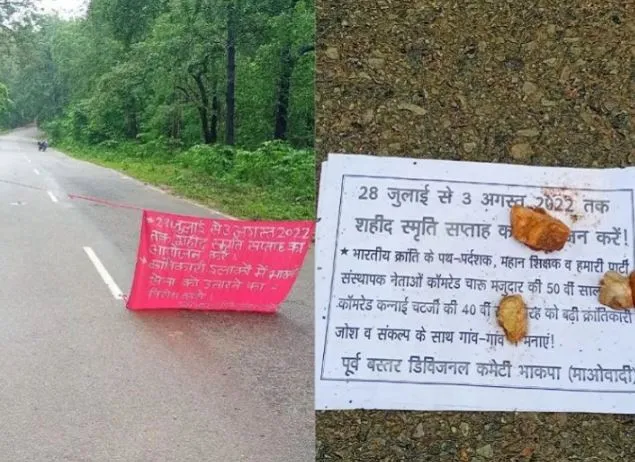 ★ 28 जुलाई से 3 अगस्त 2022
तक शहीद स्मृति सप्ताह का
आयोजन करें।
★ इलाकों में
सेना को उतारने का -
विरोध करें।
28 जुलाई से 3 अगस्त 2022 तक
शहीद स्मृति सप्ताह करें!
★ भारतीय क्रांति के पथ-पर्दशक, महान शिक्षक व हमारी पार्टी
संस्थापक नेताओं कॉमरेड चारू मजूदार की 50 वीं
कॉमरेड कन्नाई चटर्जी की 40 वीं को बढ़ी क्रांतिकारी
जोश व संकल्प के साथ गांव-गांव मनाएं!
पूर्व बस्तर डिविजनल कमेटी भाकपा (माओवादी)